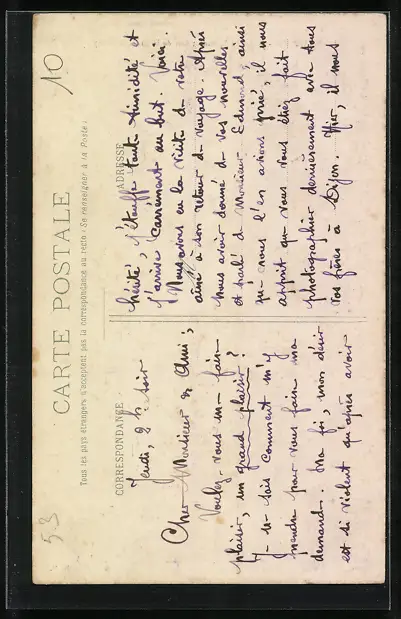 10
53
CARTE POSTALE
Tous les pays étrangers n'acceptent pas la correspondance au recto. (Se renseigner à la Poste)
CORRESPONDANCE
Jeudi, 2h. soir
Cher Monsieur & Ami,
Voulez-vous me faire
plaisir, un grand plaisir ?
Je ne sais comment m'y
prendre pour vous faire ma
demande. Ma foi, mon désir
est si violent qu'après avoir
ADRESSE
hésité, j'étouffe toute timidité et
j'arrive carrément au but. Voici.
Nous avons eu la visite de votre
aîné à son retour de voyage. Après
nous avoir donné de vos nouvelles
et parlé de Monsieur Edmond, ainsi
que nous l'en avions prié, il nous
apprit que vous vous étiez fait
photographier dernièrement avec tous
vos frères à Dijon. Hier, il nous